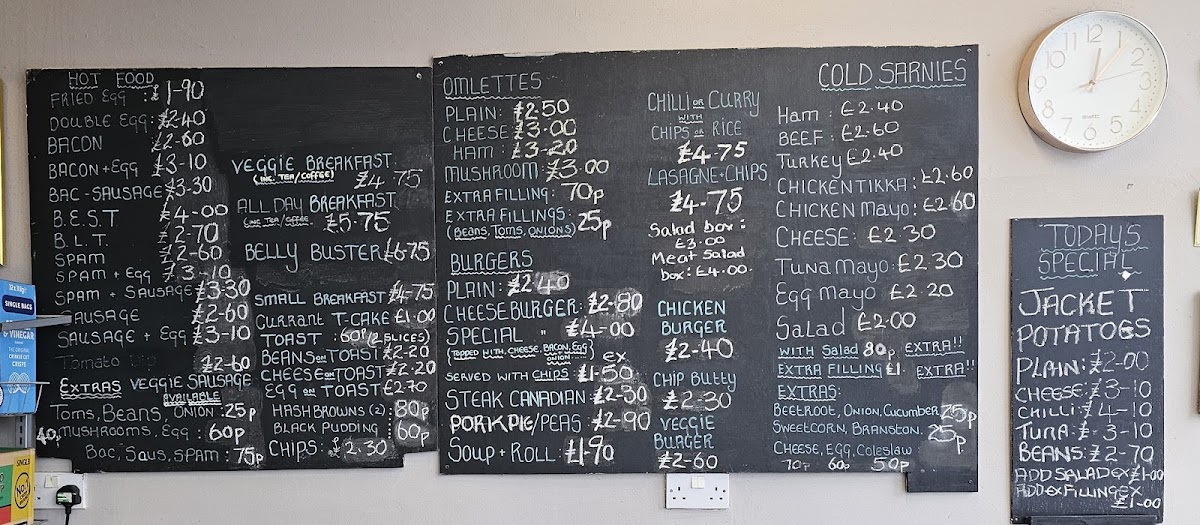 HOT FOOD
FRIED EGG : £1-90
DOUBLE EGG : £2-40
BACON £2-60
BACON + EGG £3-10
BAC - SAUSAGE £3-30
B.E.S.T £4-00
B.L.T. £2-70
SPAM £2-60
SPAM + EGG £3-10
SPAM + SAUSAGE £3-30
SAUSAGE £2-60
SAUSAGE + EGG £3-10
Tomato Dip £2-60
EXTRAS VEGGIE SAUSAGE
AVAILABLE
Toms, Beans, Onion : 25p
40p MUSHROOMS, EGG : 60p
Bac, Saus, Spam : 75p
VEGGIE BREAKFAST
(INC. TEA/COFFEE) £4-75
ALL DAY BREAKFAST
(INC TEA/COFFEE £5-75
BELLY BUSTER £6-75
SMALL BREAKFAST £4-75
CURRANT T-CAKE £1-00
TOAST : 60p (2 SLICES)
BEANS ON TOAST £2-20
CHEESE ON TOAST £2-20
EGG ON TOAST £2-70
HASH BROWNS (2) : 80p
BLACK PUDDING : 60p
CHIPS : £2.30
OMLETTES
PLAIN : £2·50
CHEESE £3·00
HAM : £3-20
MUSHROOM : £3-00
EXTRA FILLING : 70p
EXTRA FILLINGS : 25p
(BEANS, TOMS, ONIONS)
BURGERS
PLAIN : £2-40
CHEESEBURGER : £2-80
SPECIAL " £4-00
(TOPPED WITH, CHEESE, BACON, EGG
ONION)
SERVED WITH CHIPS ex £1-50
STEAK CANADIAN £2-30
PORK PIE/PEAS £2-90
Soup + Roll : £1-90
CHILLI OR CURRY
WITH
CHIPS OR RICE
£4-75
LASAGNE + CHIPS
£4-75
Salad box :
£3-00
Meat Salad
box : £4-00
CHICKEN
BURGER
£2-40
CHIP BUTTY
£2-30
VEGGIE
BURGER
£2-60
COLD SARNIES
HAM : £2-40
BEEF : £2-60
Turkey £2-40
CHICKEN TIKKA : £2-60
CHICKEN MAYO : £2-60
CHEESE : £2-30
TUNA MAYO : £2-30
EGG MAYO £2-20
Salad £2-00
WITH Salad 80p EXTRA!!
EXTRA FILLING £1. EXTRA!!
EXTRAS :
BEETROOT, ONION, CUCUMBER 25p
SWEETCORN, BRANSTON. 25p
CHEESE, EGG, Coleslaw
70p 60p 50p
TODAYS
SPECIAL
JACKET
POTATOES
PLAIN : £2-00
CHEESE : £3-10
CHILLI : £4-10
TUNA : £3-10
BEANS : £2-70
ADD SALAD EX £1-00
ADD EX FILLING EX
£1-00
12 1 2 3 4 5 6 7 8 9 10 11
QUARTZ
SINGLE BAGS
& VINEGAR
SINGLE